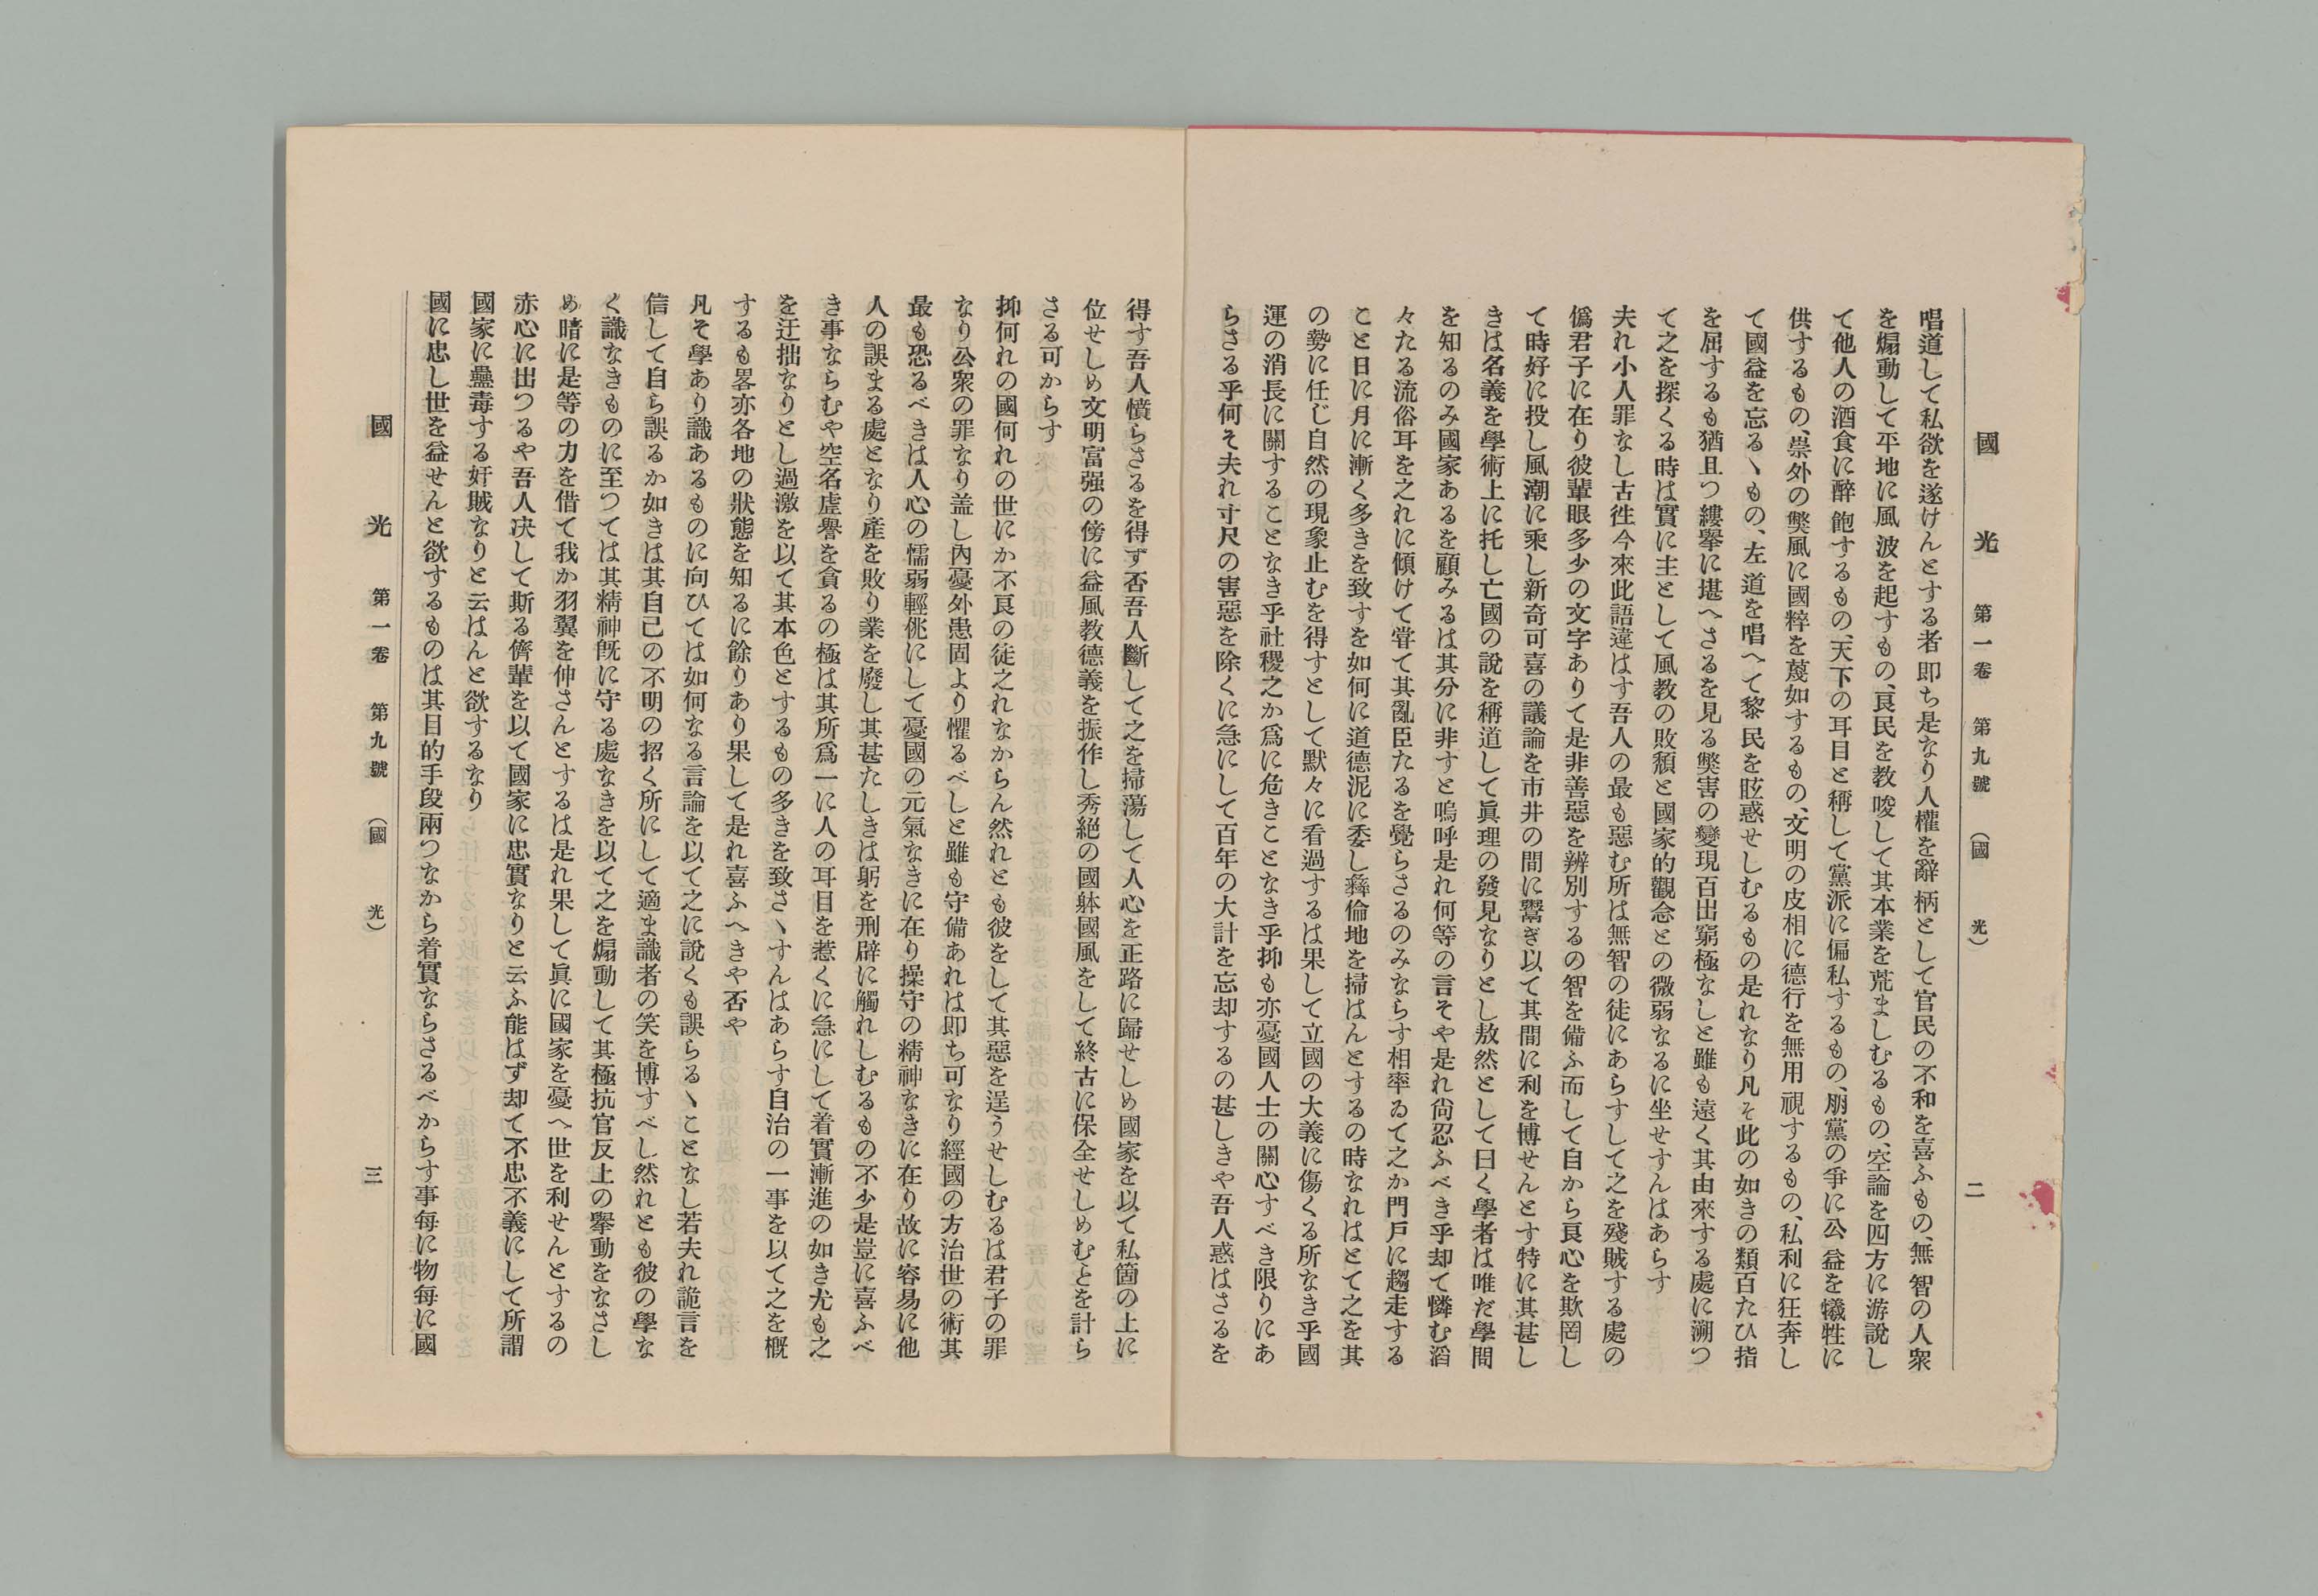 國光 第一卷 第九號 (國光) 二
唱道して私欲を遂けんとする者即ち是なり人權を辭柄として官民の不和を喜ふもの、無智の人衆
を煽動して平地に風波を起すもの、良民を教唆して其本業を荒ましむるもの、空論を四方に游說し
て他人の酒食に醉飽するもの、天下の耳目と稱して黨派に偏私するもの、朋黨の爭に公益を犧牲に
供するもの、崇外の弊風に國粹を蔑如するもの、文明の皮相に德行を無用視するもの、私利に狂奔し
て國益を忘るゝもの、左道を唱へて黎民を眩惑せしむるもの是れなり凡そ此の如きの類百たひ指
を屈するも猶且つ縷擧に堪へさるを見る弊害の變現百出窮極なしと雖も遠く其由來する處に溯つ
て之を探くる時は實に主として風教の敗頽と國家的觀念との微弱なるに坐せすんはあらす
夫れ小人罪なし古徃今來此語違はす吾人の最も惡む所は無智の徒にあらすして之を殘賊する處の
僞君子に在り彼輩眼多少の文字ありて是非善惡を辨別するの智を備ふ而して自から良心を欺罔し
て時好に投し風潮に乘し新奇可喜の議論を市井の間に鬻ぎ以て其間に利を博せんとす特に其甚し
きは名義を學術上に托し亡國の說を稱道して眞理の發見なりとし敖然として曰く學者は唯だ學問
を知るのみ國家あるを顧みるは其分に非すと嗚呼是れ何等の言そや是れ尙忍ふべき乎却て憐む滔
々たる流俗耳を之れに傾けて甞て其亂臣たるを覺らさるのみならす相率ゐて之か門戶に趨走する
こと日に月に漸く多きを致すを如何に道德泥に委し彝倫地を掃はんとするの時なれはとて之を其
の勢に任じ自然の現象止むを得すとして默々に看過するは果して立國の大義に傷くる所なき乎國
運の消長に關することなき乎社稷之か爲に危きことなき乎抑も亦憂國人士の關心すべき限りにあ
らさる乎何そ夫れ寸尺の害惡を除くに急にして百年の大計を忘却するの甚しきや吾人惑はさるを
得す吾人憤らさるを得ず否吾人斷して之を掃蕩して人心を正路に歸せしめ國家を以て私箇の上に
位せしめ文明富强の傍に益風教德義を振作し秀絕の國躰國風をして終古に保全せしめむとを計ら
さる可からす
抑何れの國何れの世にか不良の徒之れなからん然れとも彼をして其惡を逞うせしむるは君子の罪
なり公衆の罪なり盖し內憂外患固より懼るべしと雖も守備あれは即ち可なり經國の方治世の術其
最も恐るべきは人心の懦弱輕佻にして憂國の元氣なきに在り操守の精神なきに在り故に容易に他
人の誤まる處となり產を敗り業を廢し其甚たしきは躬を刑辟に觸れしむるもの不少是豈に喜ふべ
き事ならむや空名虛譽を貪るの極は其所爲一に人の耳目を惹くに急にして着實漸進の如き尤も之
を迂拙なりとし過激を以て其本色とするもの多きを致さゝすんはあらす自治の一事を以て之を槪
するも畧亦各地の狀態を知るに餘りあり果して是れ喜ふへきや否や
凡そ學あり識あるものに向ひては如何なる言論を以て之に說くも誤らるゝことなし若夫れ詭言を
信して自ら誤るか如きは其自己の不明の招く所にして適ま識者の笑を博すべし然れとも彼の學な
く識なきものに至つては其精神旣に守る處なきを以て之を煽動して其極抗官反上の擧動をなさし
め暗に是等の力を借て我か羽翼を伸さんとするは是れ果して眞に國家を憂へ世を利せんとするの
赤心に出つるや吾人決して斯る儕輩を以て國家に忠實なりと云ふ能はず却て不忠不義にして所謂
國家に蠱毒する奸賊なりと云はんと欲するなり
國に忠し世を益せんと欲するものは其目的手段兩つなから着實ならさるべからす事每に物每に國
國光 第一卷 第九號 (國光) 三